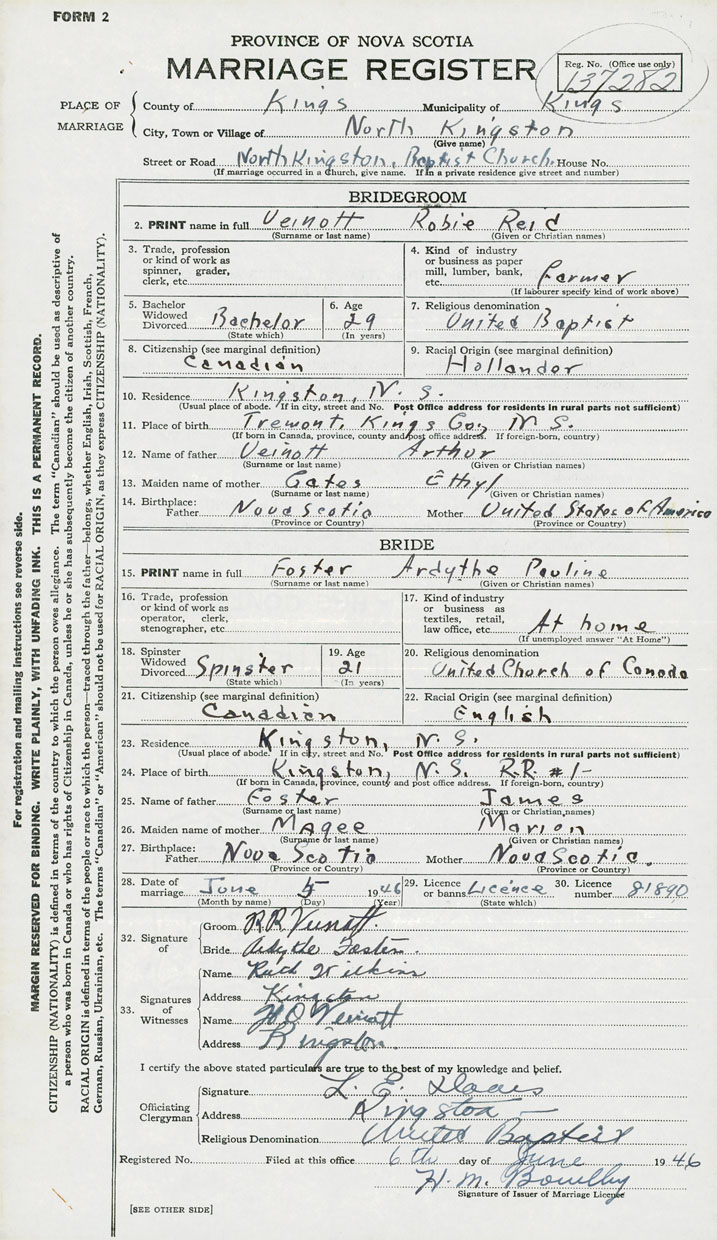 FORM 2
PROVINCE OF NOVA SCOTIA
MARRIAGE REGISTER
Reg. No. (Office use only)
137282
PLACE OF MARRIAGE
County of Kings Municipality of Kings
City, Town or Village of North Kingston
(Give name)
Street or Road North Kingston, Baptist Church House No.
(If marriage occurred in a Church, give name. If in a private residence give street and number)
BRIDEGROOM
2. PRINT name in full Veinott Robie Reid
(Surname or last name) (Given or Christian names)
3. Trade, profession or kind of work as spinner, grader, clerk, etc.
4. Kind of industry or business as paper mill, lumber, bank, etc. Farmer
(If labourer specify kind of work above)
5. Bachelor Widowed Divorced Bachelor
(State which)
6. Age 29
(In years)
7. Religious denomination
United Baptist
8. Citizenship (see marginal definition)
Canadian
9. Racial Origin (see marginal definition)
Hollander
10. Residence Kingston, N. S.
(Usual place of abode. If in city, street and No. Post Office address for residents in rural parts not sufficient)
11. Place of birth Tremont, Kings Co., N. S.
(If born in Canada, province, county and post office address. If foreign-born, country)
12. Name of father Veinott Arthur
(Surname or last name) (Given or Christian names)
13. Maiden name of mother Gates Ethyl
(Surname or last name) (Given or Christian names)
14. Birthplace: Father Nova Scotia Mother United States of America
(Province or Country) (Province or Country)
BRIDE
15. PRINT name in full Foster Ardythe Pauline
(Surname or last name) (Given or Christian names)
16. Trade, profession or kind of work as operator, clerk, stenographer, etc
17. Kind of industry or business as textiles, retail, law office, etc. At home
(If unemployed answer "At Home")
18. Spinster Widowed Divorced Spinster
(State which)
19. Age 21
(In years)
20. Religious denomination
United Church of Canada
21. Citizenship (see marginal definition)
Canadian
22. Racial Origin (see marginal definition)
English
23. Residence Kingston, N. S.
(Usual place of abode. If in city, street and No. Post Office address for residents in rural parts not sufficient)
24. Place of birth Kingston, N. S. R.R. #1-
(If born in Canada, province, county and post office address. If foreign-born, country)
25. Name of father Foster James
(Surname or last name) (Given or Christian names)
26. Maiden name of mother Magee Marion
(Surname or last name) (Given or Christian names)
27. Birthplace: Father Nova Scotia Mother Nova Scotia.
(Province or Country) (Province or Country)
28. Date of marriage June 5 1946
(Month by name) (Day) (Year)
29. Licence or banns Licence
(State which)
30. Licence number 81890
32. Signature of
Groom R.R. Veinott.
Bride Ardythe Foster.
33. Signatures of Witnesses
Name Ruth Wilkins
Address Kingston
Name Veinott
Address Kingston.
I certify the above stated particulars are true to the best of my knowledge and belief.
Officiating Clergyman
Signature L. E.
Address Kingston
Religious Denomination United Baptist
Registered No. Filed at this office 6th day of June 1946
H. M. Bowlby
Signature of Issuer of Marriage License
[SEE OTHER SIDE]
For registration and mailing instructions see reverse side.
MARGIN RESERVED FOR BINDING. WRITE PLAINLY, WITH UNFADING INK. THIS IS A PERMANENT RECORD.
CITIZENSHIP (NATIONALITY) is defined in terms of the country to which the person owes allegiance. The term "Canadian" should be used as descriptive of
a person who was born in Canada or who has rights of Citizenship in Canada, unless he or she has subsequently become the citizen of another country.
RACIAL ORIGIN is defined in terms of the people or race to which the person—traced through the father—belongs, whether English, Irish, Scottish, French,
German, Russian, Ukrainian, etc. The terms "Canadian" or "American" should not be used for RACIAL ORIGIN, as they express CITIZENSHIP (NATIONALITY).